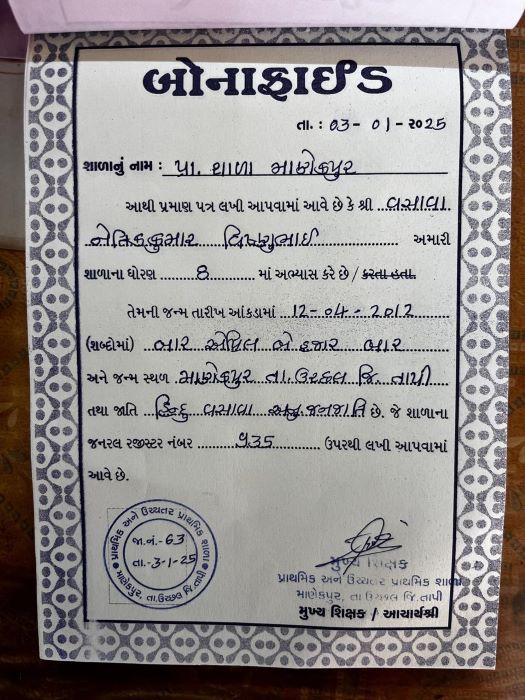 બોનાફાઈડ
તા. : ૦૩- ૦૧ -૨૦25
શાળાનું નામ : પ્રા. શાળા માણેકપુર
આથી પ્રમાણ પત્ર લખી આપવામાં આવે છે કે શ્રી વસાવા
નૈતિકકુમાર વિષ્ણુભાઈ અમારી
શાળાના ધોરણ 8 માં અભ્યાસ કરે છે / કરતા હતા.
તેમની જન્મ તારીખ આંકડામાં 12-04-2012
(શબ્દોમાં) બાર એપ્રિલ બે હજાર બાર
અને જન્મ સ્થળ માણેકપુર તા. ઉચ્છલ જિ. તાપી
તથા જાતિ હિન્દુ વસાવા અનુ.જનજાતિ છે. જે શાળાના
જનરલ રજીસ્ટર નંબર 935 ઉપરથી લખી આપવામાં
આવે છે.
પ્રાથમિક અને ઉચ્ચતર પ્રાથમિક શાળા
જા.નં.-63
તા.-3-1-25
માણેકપુર, તા.ઉચ્છલ જિ.તાપી
મુખ્ય શિક્ષક
પ્રાથમિક અને ઉચ્ચતર પ્રાથમિક શાળા
માણેકપુર, તા.ઉચ્છલ જિ.તાપી
મુખ્ય શિક્ષક / આચાર્યશ્રી